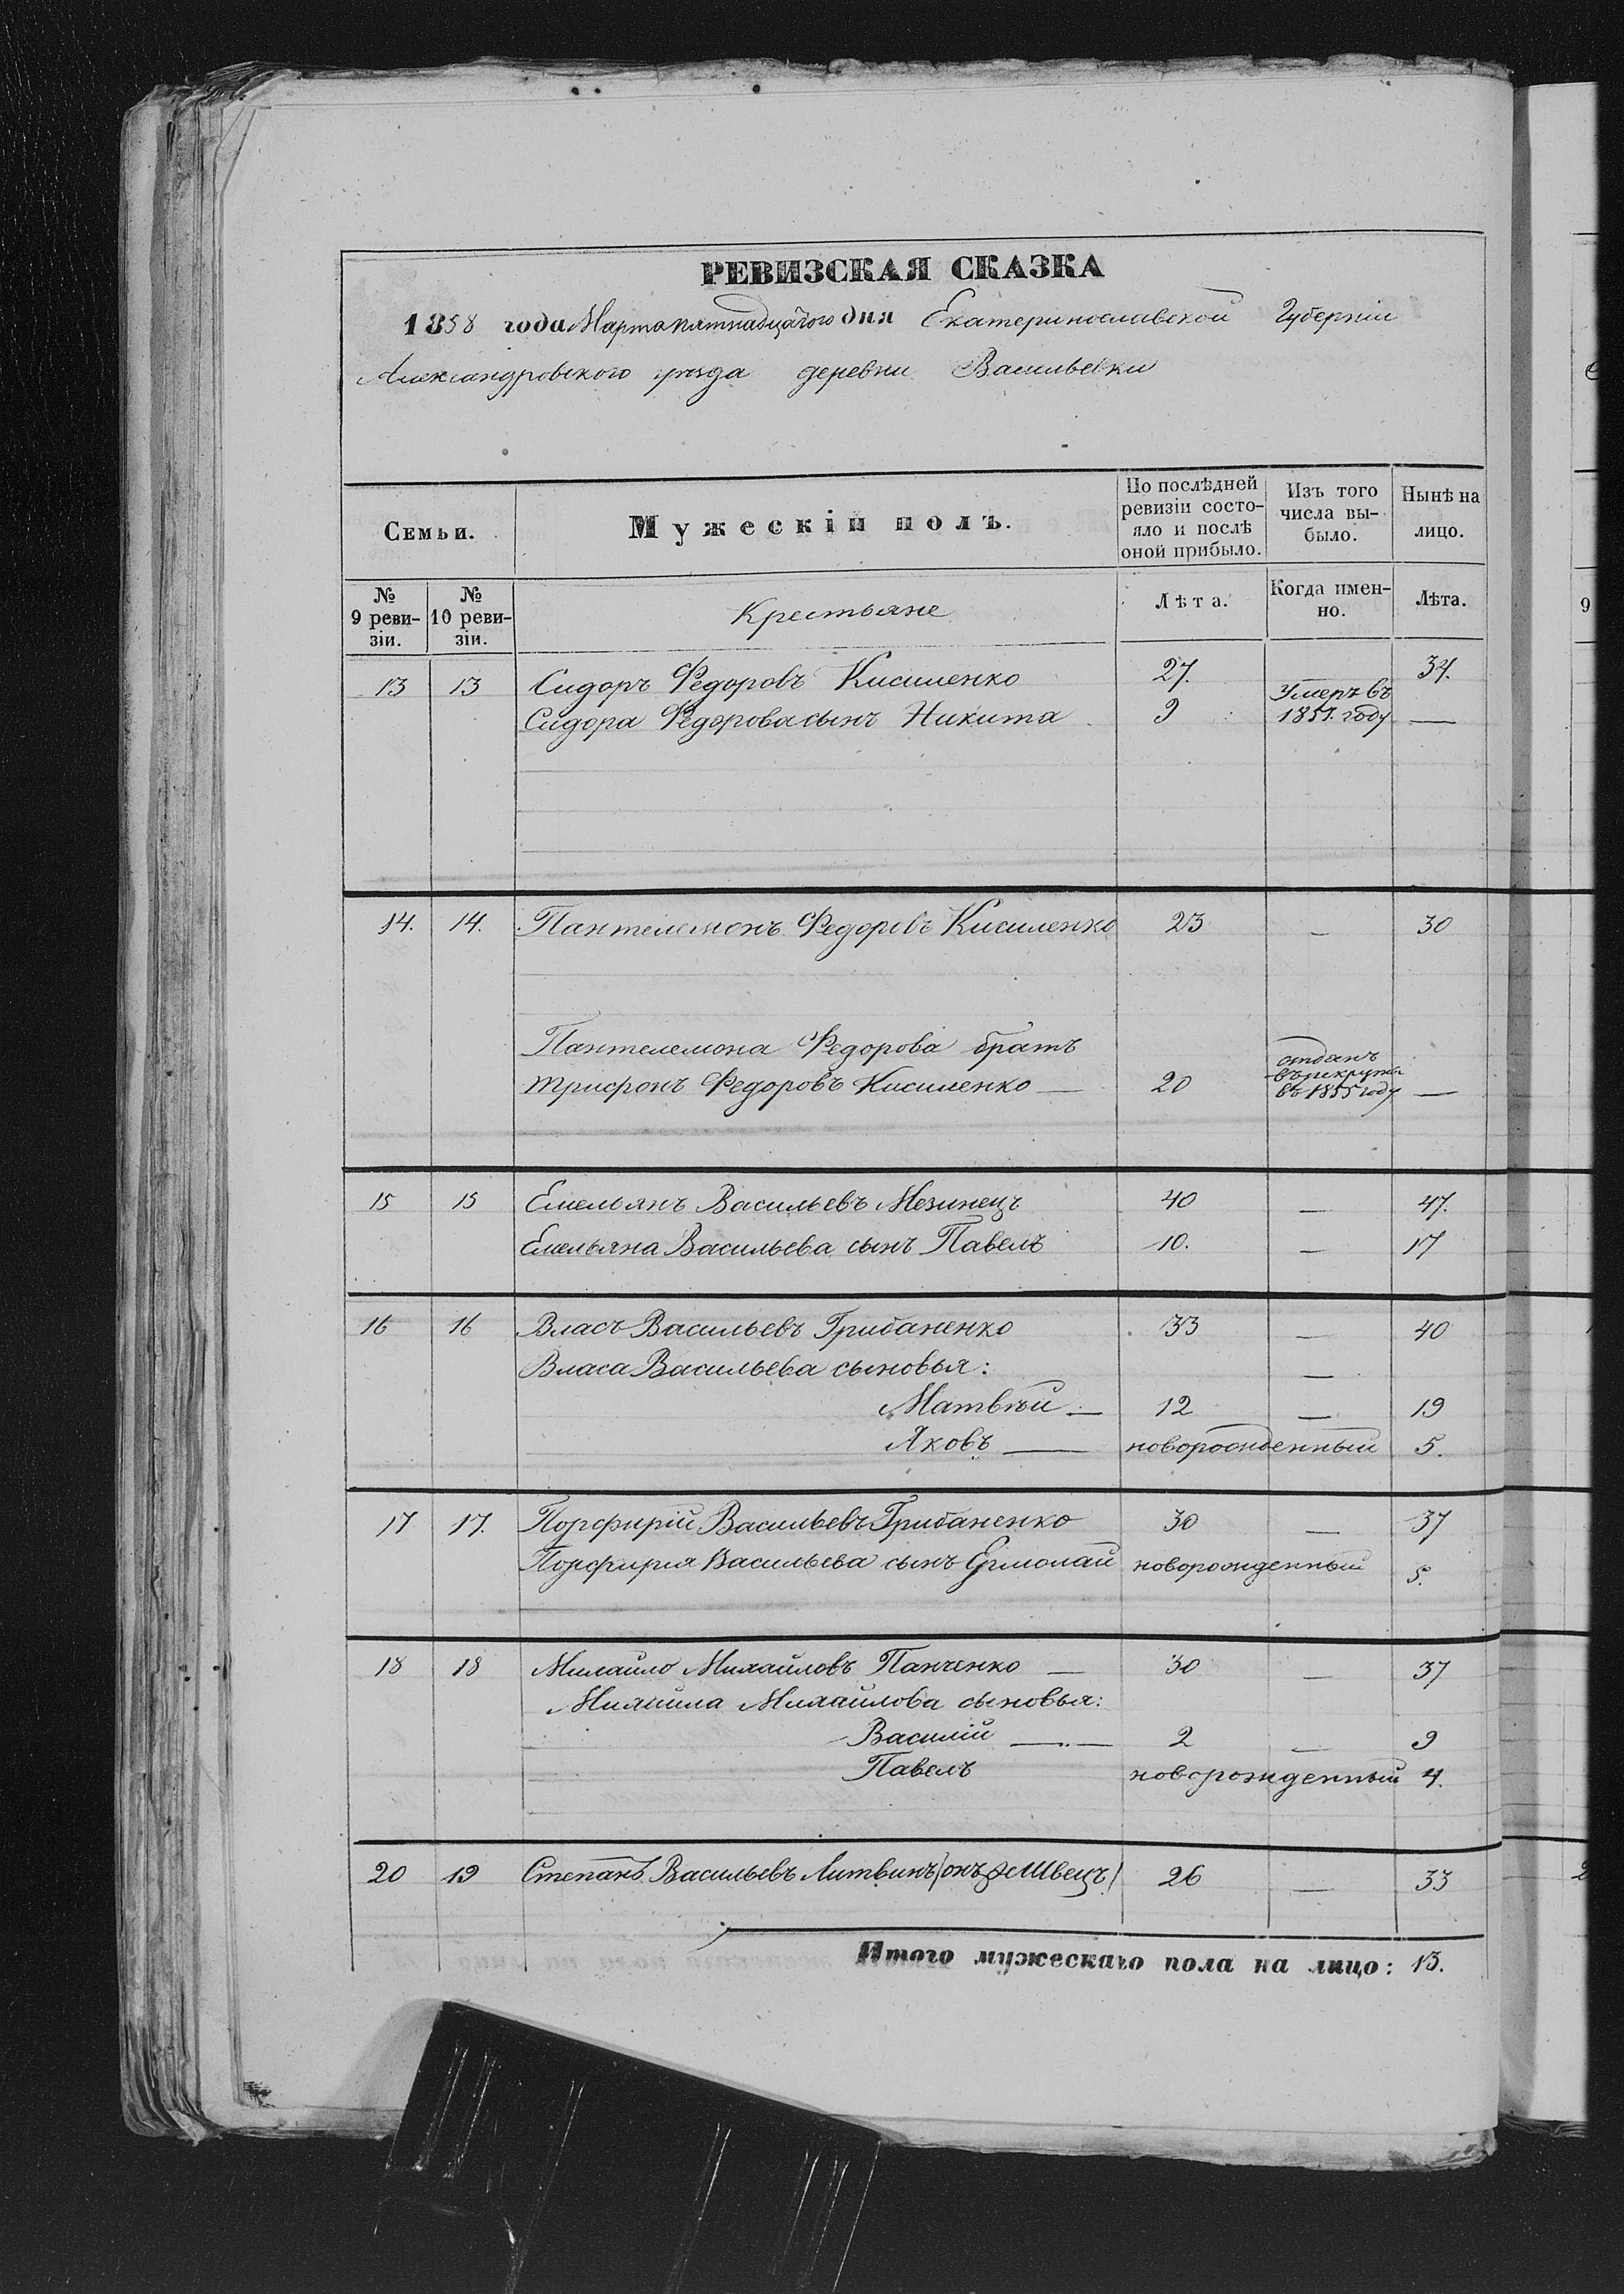 РЕВИЗСКАЯ СКАЗКА
1858 года Марта пятнадцатого дня Екатеринославской Губерніи
Александровского уѣзда деревни Васильевки
Семьи.
Мужескій полъ.
По послѣдней ревизіи состояло и послѣ оной прибыло.
Изъ того числа выбыло.
Нынѣ на лицо.
№ 9 ревизіи.
№ 10 ревизіи.
Крестьяне
Лѣта.
Когда именно.
Лѣта.
13 13 Сидоръ Федоровъ Кисиленко 27. 34.
Сидора Федорова сынъ Никита 9 Умеръ въ 1857. году —
14. 14. Пантелемонъ Федоровъ Кисиленко 23 — 30
Пантелемона Федорова братъ
Трифонъ Федоровъ Кисиленко — 20 отданъ въ рекруты въ 1855 году —
15 15 Емельянъ Васильевъ Мезинецъ 40 — 47.
Емельяна Васильева сынъ Павелъ 10. — 17
16 16 Власъ Васильевъ Грибаненко 33 — 40
Власа Васильева сыновья: —
Матвѣй — 12 — 19
Яковъ — новорожденный 5.
17 17. Порфирій Васильевъ Грибаненко 30 — 37
Порфирия Васильева сынъ Ермолай новорожденный 5.
18 18 Михайло Михайловъ Панченко — 30 — 37
Михайла Михайлова сыновья:
Василій — 2 — 9
Павелъ новорожденный 4.
20 19 Степанъ Васильевъ Литвинъ (онъ же Швецъ) 26 — 33
Итого мужескаго пола на лицо: 13.